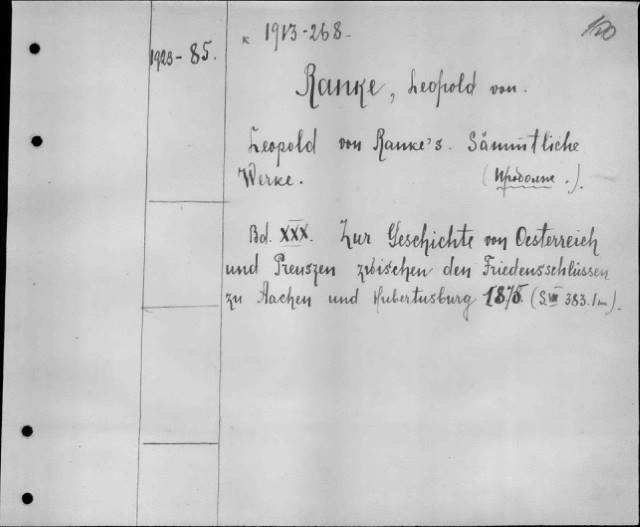 1923-85.
к 1913-268-
120
Ranke, Leopold von.
Leopold von Ranke's. Sämmtliche
Werke. (Продолж.).
Bd. XXX. Zur Geschichte von Oesterreich
und Preuszen zwischen den Friedensschlüssen
zu Aachen und Hubertusburg 1875 (S. VIII 383. 1 m).